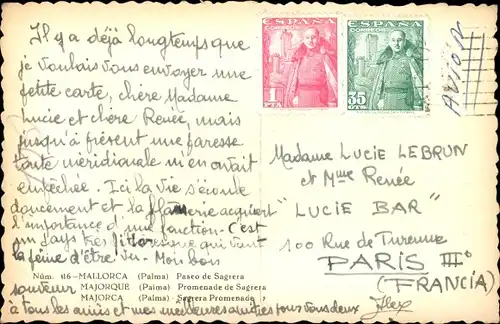 Il y a déjà longtemps que
je voulais vous envoyer une
petite carte, chère Madame
Lucie et chère Renée, mais
jusqu'à présent une paresse
toute méridionale m'en avait
empêchée. Ici la vie s'écoule
doucement et la flânerie acquiert
l'importance d'une fonction. C'est
un pays très pittoresque qui vaut
la peine d'être vu. Mon bon
souvenir
à tous les amis et mes meilleures amitiés pour vous deux
Alex
ESPAÑA
CORREOS
1
PTA
ESPAÑA
CORREOS
35
CTS
AVION
Madame LUCIE LEBRUN
et Mme Renée
"LUCIE BAR"
100 Rue de Turenne
PARIS IIIe
(FRANCIA)
Núm. 116 - MALLORCA (Palma) Paseo de Sagrera
MAJORQUE (Palma) Promenade de Sagrera
MAJORCA (Palma) Sagrera Promenade